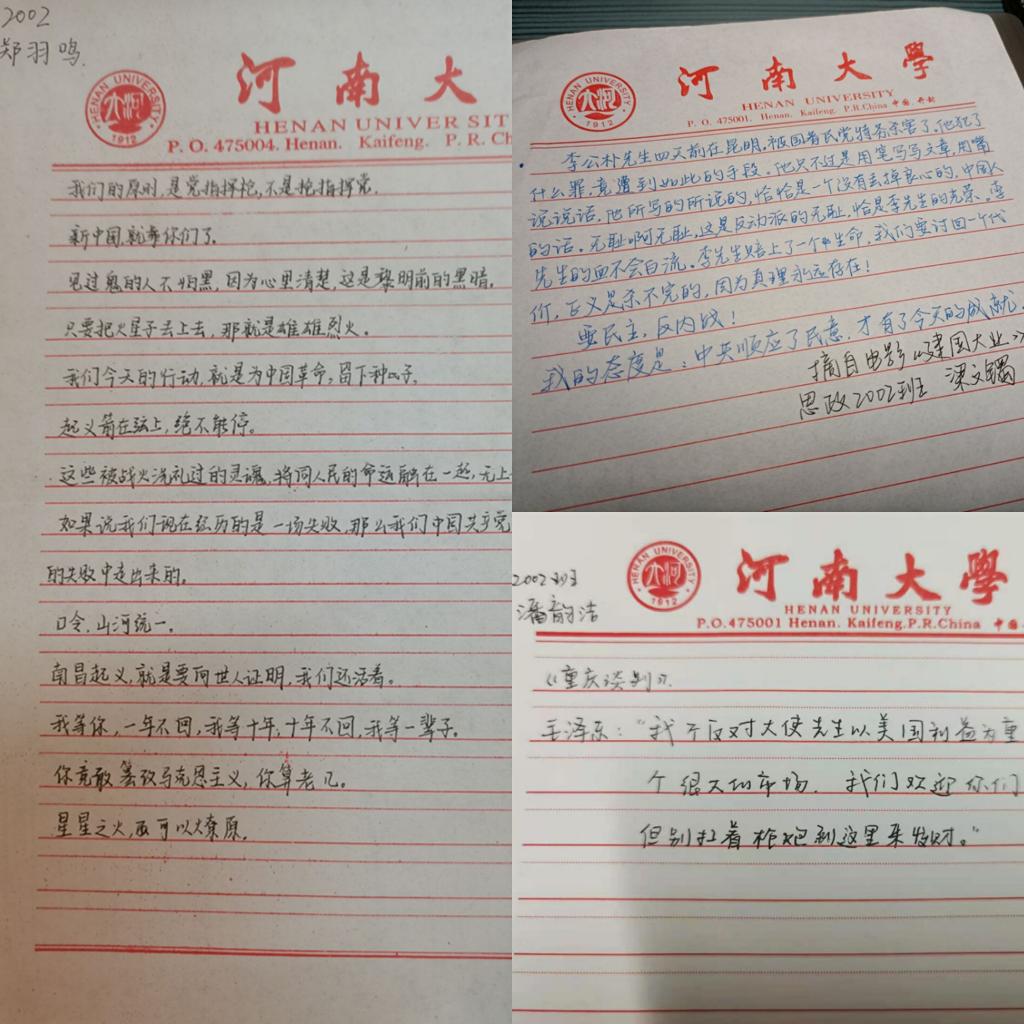 2002
郑羽鸣.
HENAN UNIVERSITY
1912
河南大
HENAN UNIVERSIT
P. O. 475004. Henan. Kaifeng. P. R. Ch
我们的原则,是党指挥枪,不是枪指挥党.
新中国,就靠你们了.
见过鬼的人不怕黑,因为心里清楚,这是黎明前的黑暗.
只要把火星子丢上去,那就是雄雄烈火。
我们今天的行动,就是为中国革命,留下种子.
起义箭在弦上,绝不能停。
这些被战火洗礼过的灵魂,将同人民的命运融在一起,无上
如果说我们现在经历的是一场失败,那么我们中国共产党
的失败中走出来的。
口令,山河统一。
南昌起义,就是要向世人证明,我们还活着。
我等你,一年不回,我等十年,十年不回,我等一辈子。
你竟敢篡改马克思主义,你算老几。
星星之火,可以燎原.
HENAN UNIVERSITY
1912
河南大學
HENAN UNIVERSITY
P. O. 475001. Henan. Kaifeng. P.R.China 中国.开封
李公朴先生四天前在昆明,被国民党特务杀害了,他犯了
什么罪,竟遭到如此的手段。他只不过是用笔写写文章,用嘴
说说话,他所写的所说的,恰恰是一个没有丢掉良心的,中国人
的话。无耻啊无耻,这是反动派的无耻,恰是李先生的光荣。李
先生的血不会白流。李先生赔上了一个生命,我们要讨回一个代
价,正义是杀不完的,因为真理永远存在!
要民主,反内战!
我的态度是:中央顺应了民意,才有了今天的成就.
摘自电影《建国大业》
思政2002班 梁文
HENAN UNIVERSITY
1912
河南大學
HENAN UNIVERSITY
P.O.475001 Henan. Kaifeng.P.R.China 中国
2002班
潘韵洁
《重庆谈判》.
毛泽东:“我不反对大使先生以美国利益为重
个很大的市场. 我们欢迎你们
但别扛着枪炮到这里来发财。”